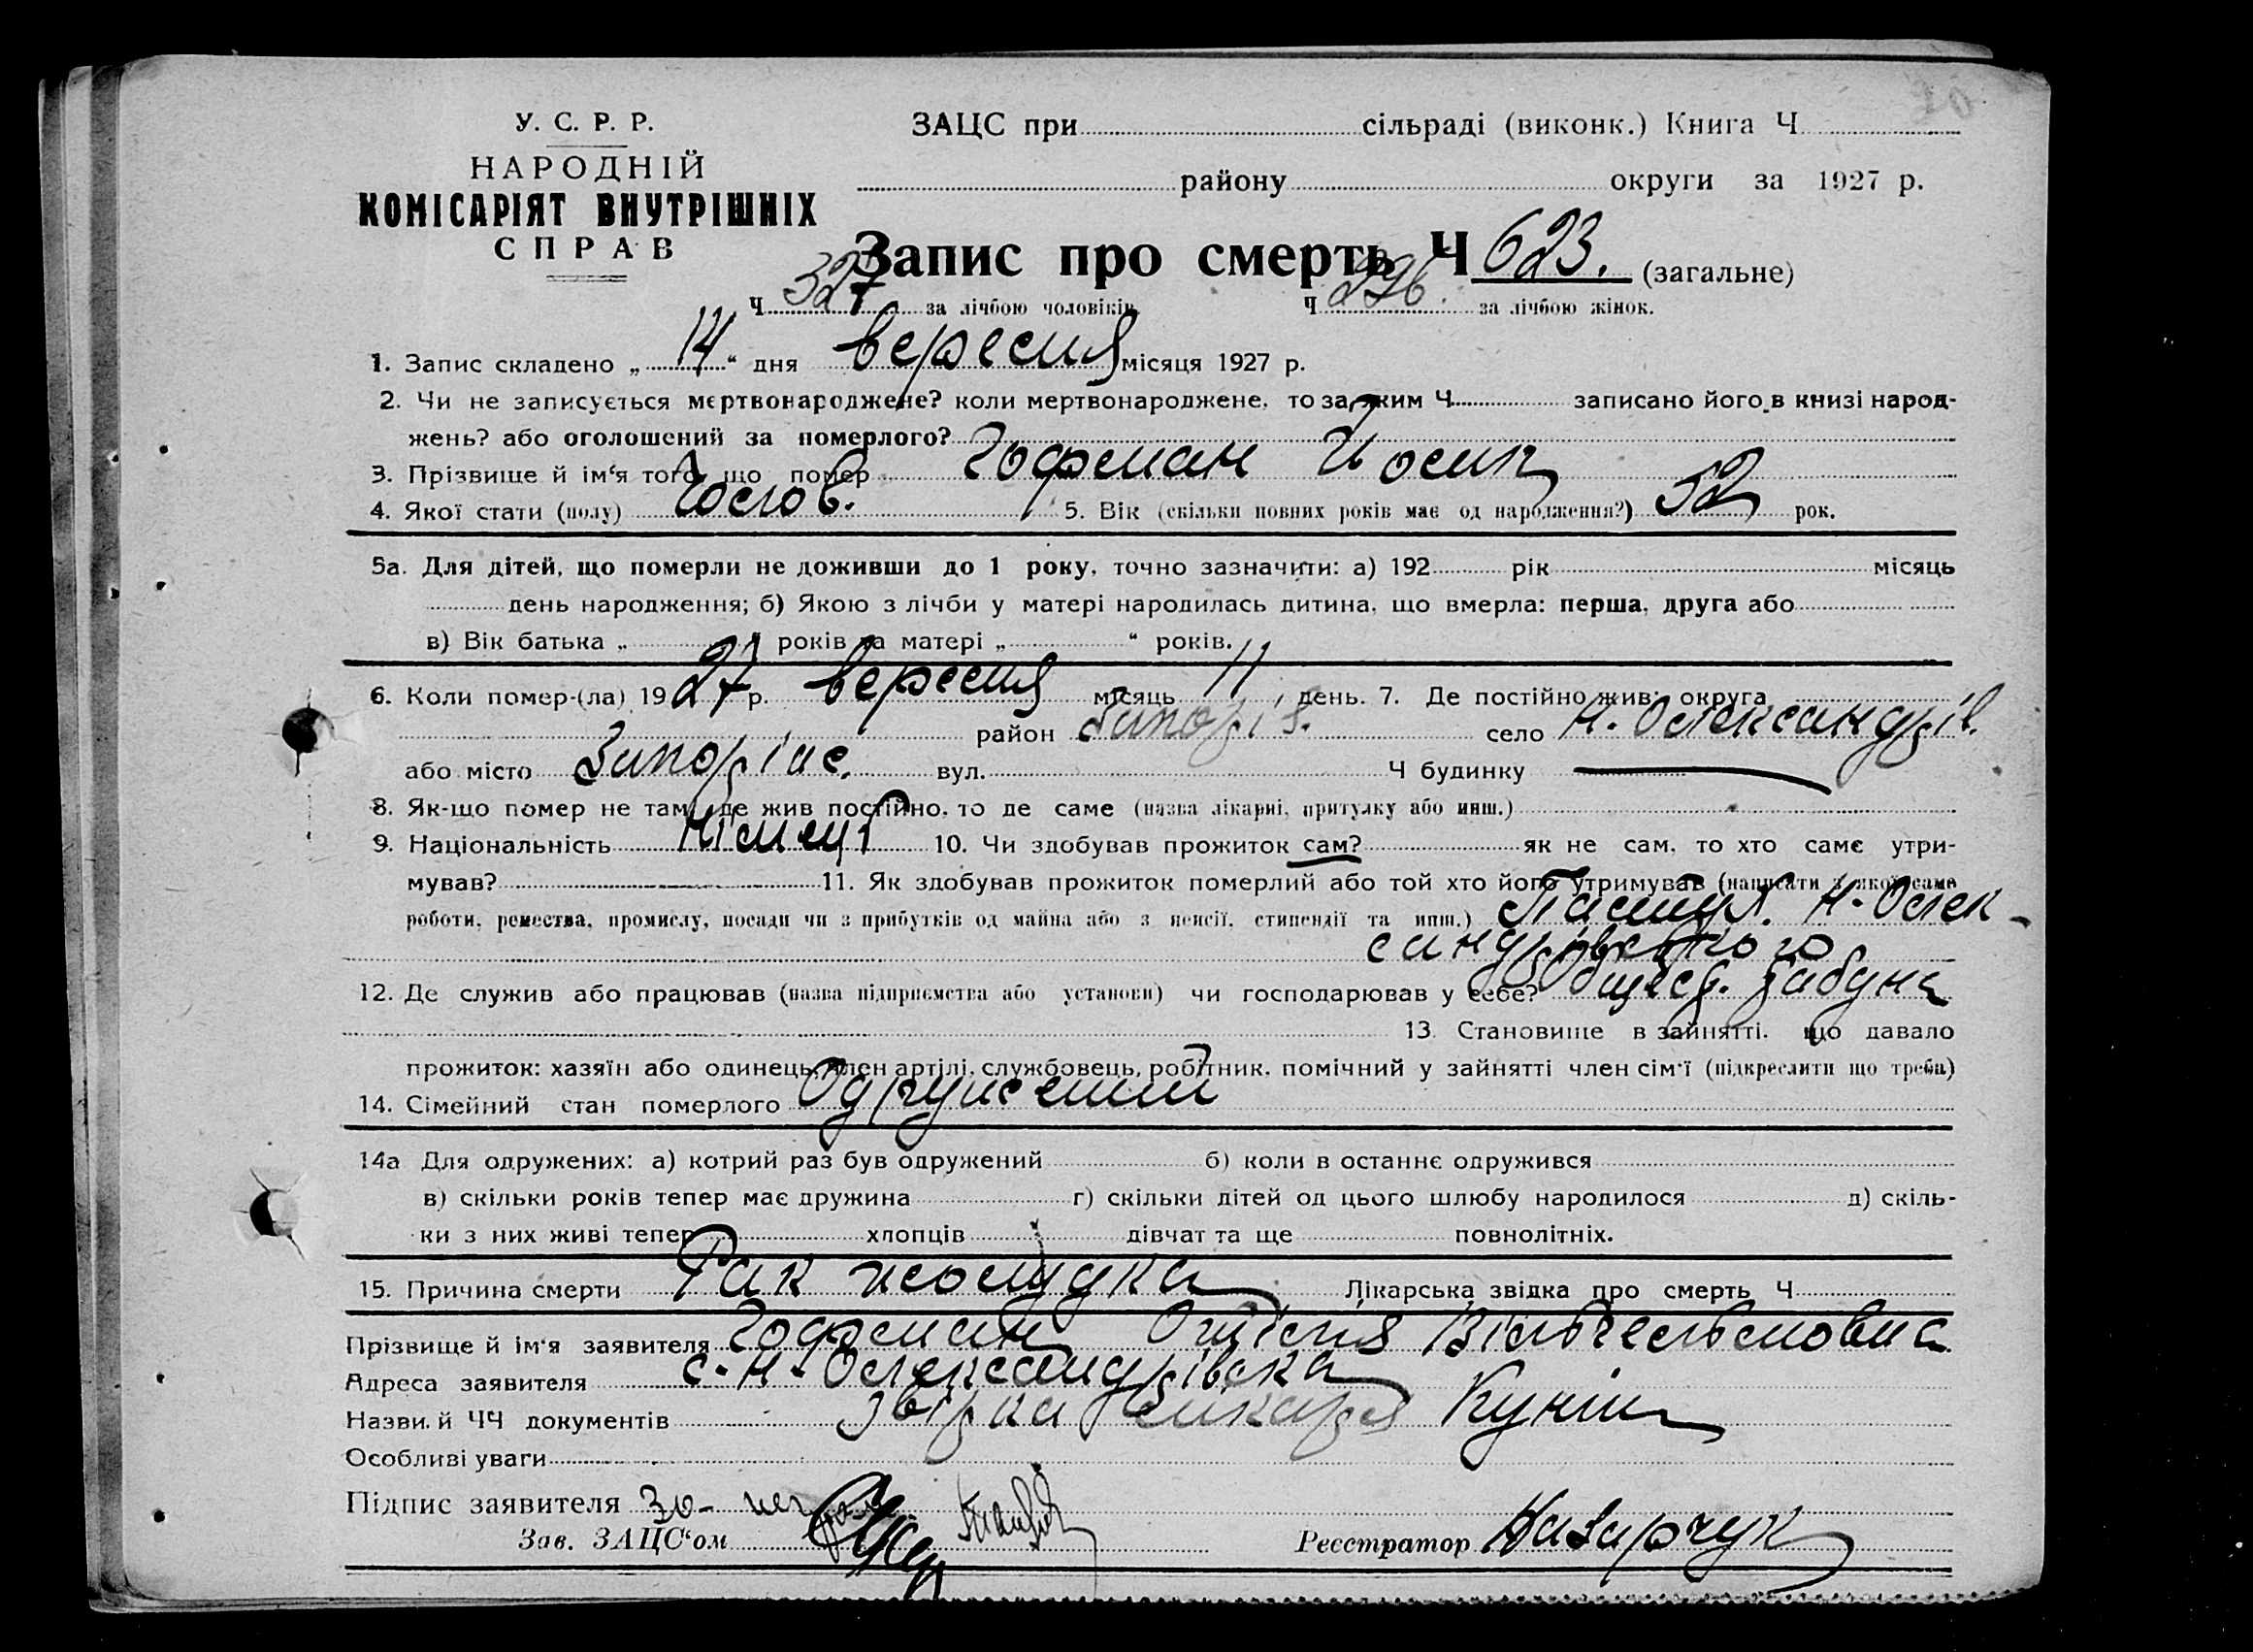 У. С. Р. Р.
НАРОДНІЙ
КОМІСАРІЯТ ВНУТРІШНІХ
СПРАВ
ЗАЦС при сільраді (виконк.) Книга Ч
району округи за 1927 р.
Запис про смерть Ч 623. (загальне)
Ч 327 за лічбою чоловіків. Ч 296. за лічбою жінок.
1. Запис складено „ 14 “ дня вересня місяця 1927 р.
2. Чи не записується мертвонароджене? коли мертвонароджене, то за яким Ч записано його в книзі народ-
жень? або оголошений за померлого?
3. Прізвище й ім‘я того, що помер Гофман Йосип
4. Якої стати (полу) Чолов. 5. Вік (скільки повних років має од народження?) 52 рок.
5а. Для дітей, що померли не доживши до 1 року, точно зазначити: а) 192 рік місяць
день народження; б) Якою з лічби у матері народилась дитина, що вмерла: перша, друга або
в) Вік батька „ “ років та матері „ “ років.
6. Коли помер-(ла) 1927 р. вересня місяць 11 день. 7. Де постійно жив: округа
район Запоріз. село Н. Олександрів.
або місто Запоріже. вул. Ч будинку
8. Як-що помер не там, де жив постійно, то де саме (назва лікарні, притулку або инш.)
9. Національність Німець 10. Чи здобував прожиток сам? як не сам, то хто саме утри-
мував? 11. Як здобував прожиток померлий або той хто його утримував (написати з якої саме
роботи, ремества, промислу, посади чи з прибутків од майна або з пенсії, стипендії та инш.) Пастух. Н-Олек-
сандрівського
12. Де служив або працював (назва підприємства або установи) чи господарював у себе? Общест. табуна
13. Становище в зайнятті, що давало
прожиток: хазяїн або одинець, член артілі, службовець, робітник, помічний у зайнятті член сім‘ї (підкреслити що треба)
14. Сімейний стан померлого Одружений
14а Для одружених: а) котрий раз був одружений б) коли в останнє одружився
в) скільки років тепер має дружина г) скільки дітей од цього шлюбу народилося д) скіль-
ки з них живі тепер хлопців дівчат та ще повнолітніх.
15. Причина смерти Рак жолудка Лікарська звідка про смерть Ч
Прізвище й ім‘я заявителя Гофман Вільгельмовна
Адреса заявителя с. Н-Олександрівка
Назви й ЧЧ документів Звідка лікаря Кунін
Особливі уваги
Підпис заявителя За неграм.
Зав. ЗАЦС‘ом Реєстратор Назарчук